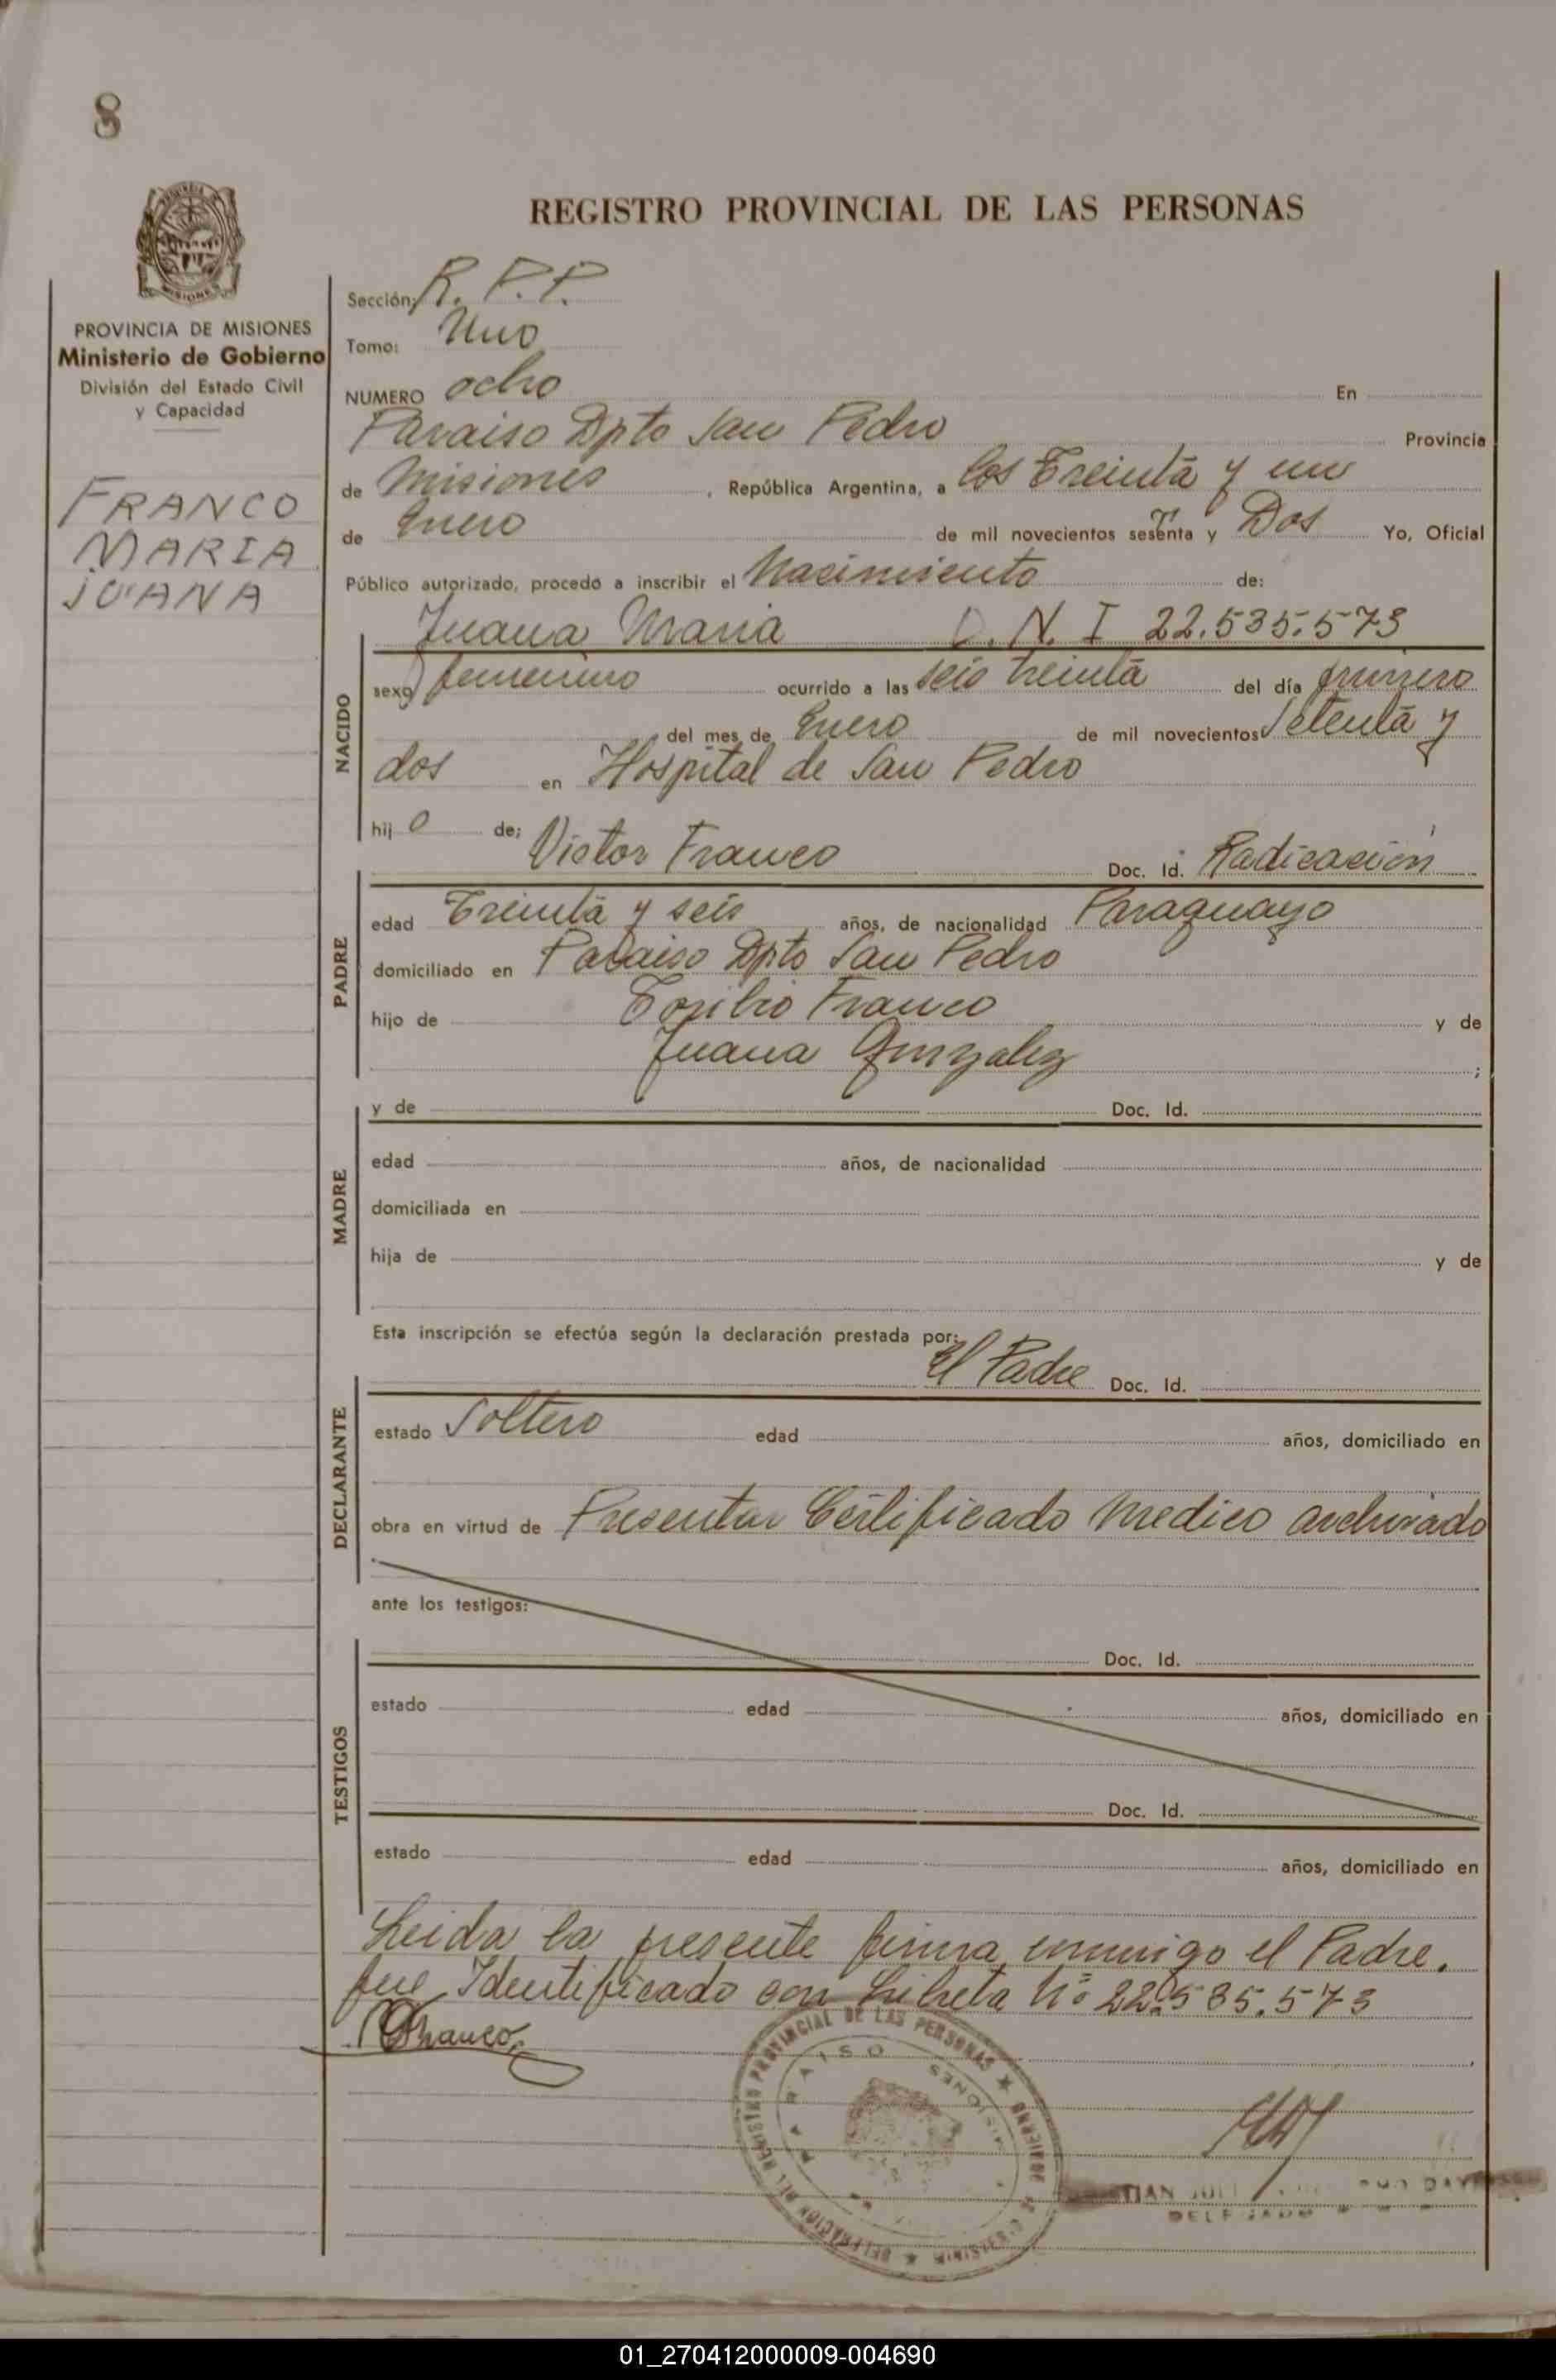 8
REGISTRO PROVINCIAL DE LAS PERSONAS
PROVINCIA DE MISIONES
Ministerio de Gobierno
División del Estado Civil
y Capacidad
FRANCO
MARIA
JUANA
Sección: R. P. P.
Tomo: Uno
NUMERO ocho En
Paraiso Dpto San Pedro Provincia
de Misiones, República Argentina, a los Treinta y un
de Enero de mil novecientos sesenta y Dos Yo, Oficial
Público autorizado, procedo a inscribir el Nacimiento de:
Juana Maria D. N. I 22.535.573
NACIDO
sexo femenino ocurrido a las seis treinta del día primero
del mes de Enero de mil novecientos Setenta y
dos en Hospital de San Pedro
hij o de: Victor Franco Doc. Id. Radicación
PADRE
edad Treinta y seis años, de nacionalidad Paraguayo
domiciliado en Paraiso Dpto San Pedro
hijo de Toribio Franco y de
Juana Gonzalez ;
MADRE
y de Doc. Id.
edad años, de nacionalidad
domiciliada en
hija de y de
Esta inscripción se efectúa según la declaración prestada por:
El Padre Doc. Id.
DECLARANTE
estado Soltero edad años, domiciliado en
obra en virtud de Presentar Certificado Medico archivado
ante los testigos:
TESTIGOS
Doc. Id.
estado edad años, domiciliado en
Doc. Id.
estado edad años, domiciliado en
Leida la presente firma conmigo el Padre.
fue Identificado con Libreta Nº 22.535.573
Franco
DELEGACION DEL REGISTRO PROVINCIAL DE LAS PERSONAS
PARAISO MISIONES
DELEGADO
01_270412000009-004690